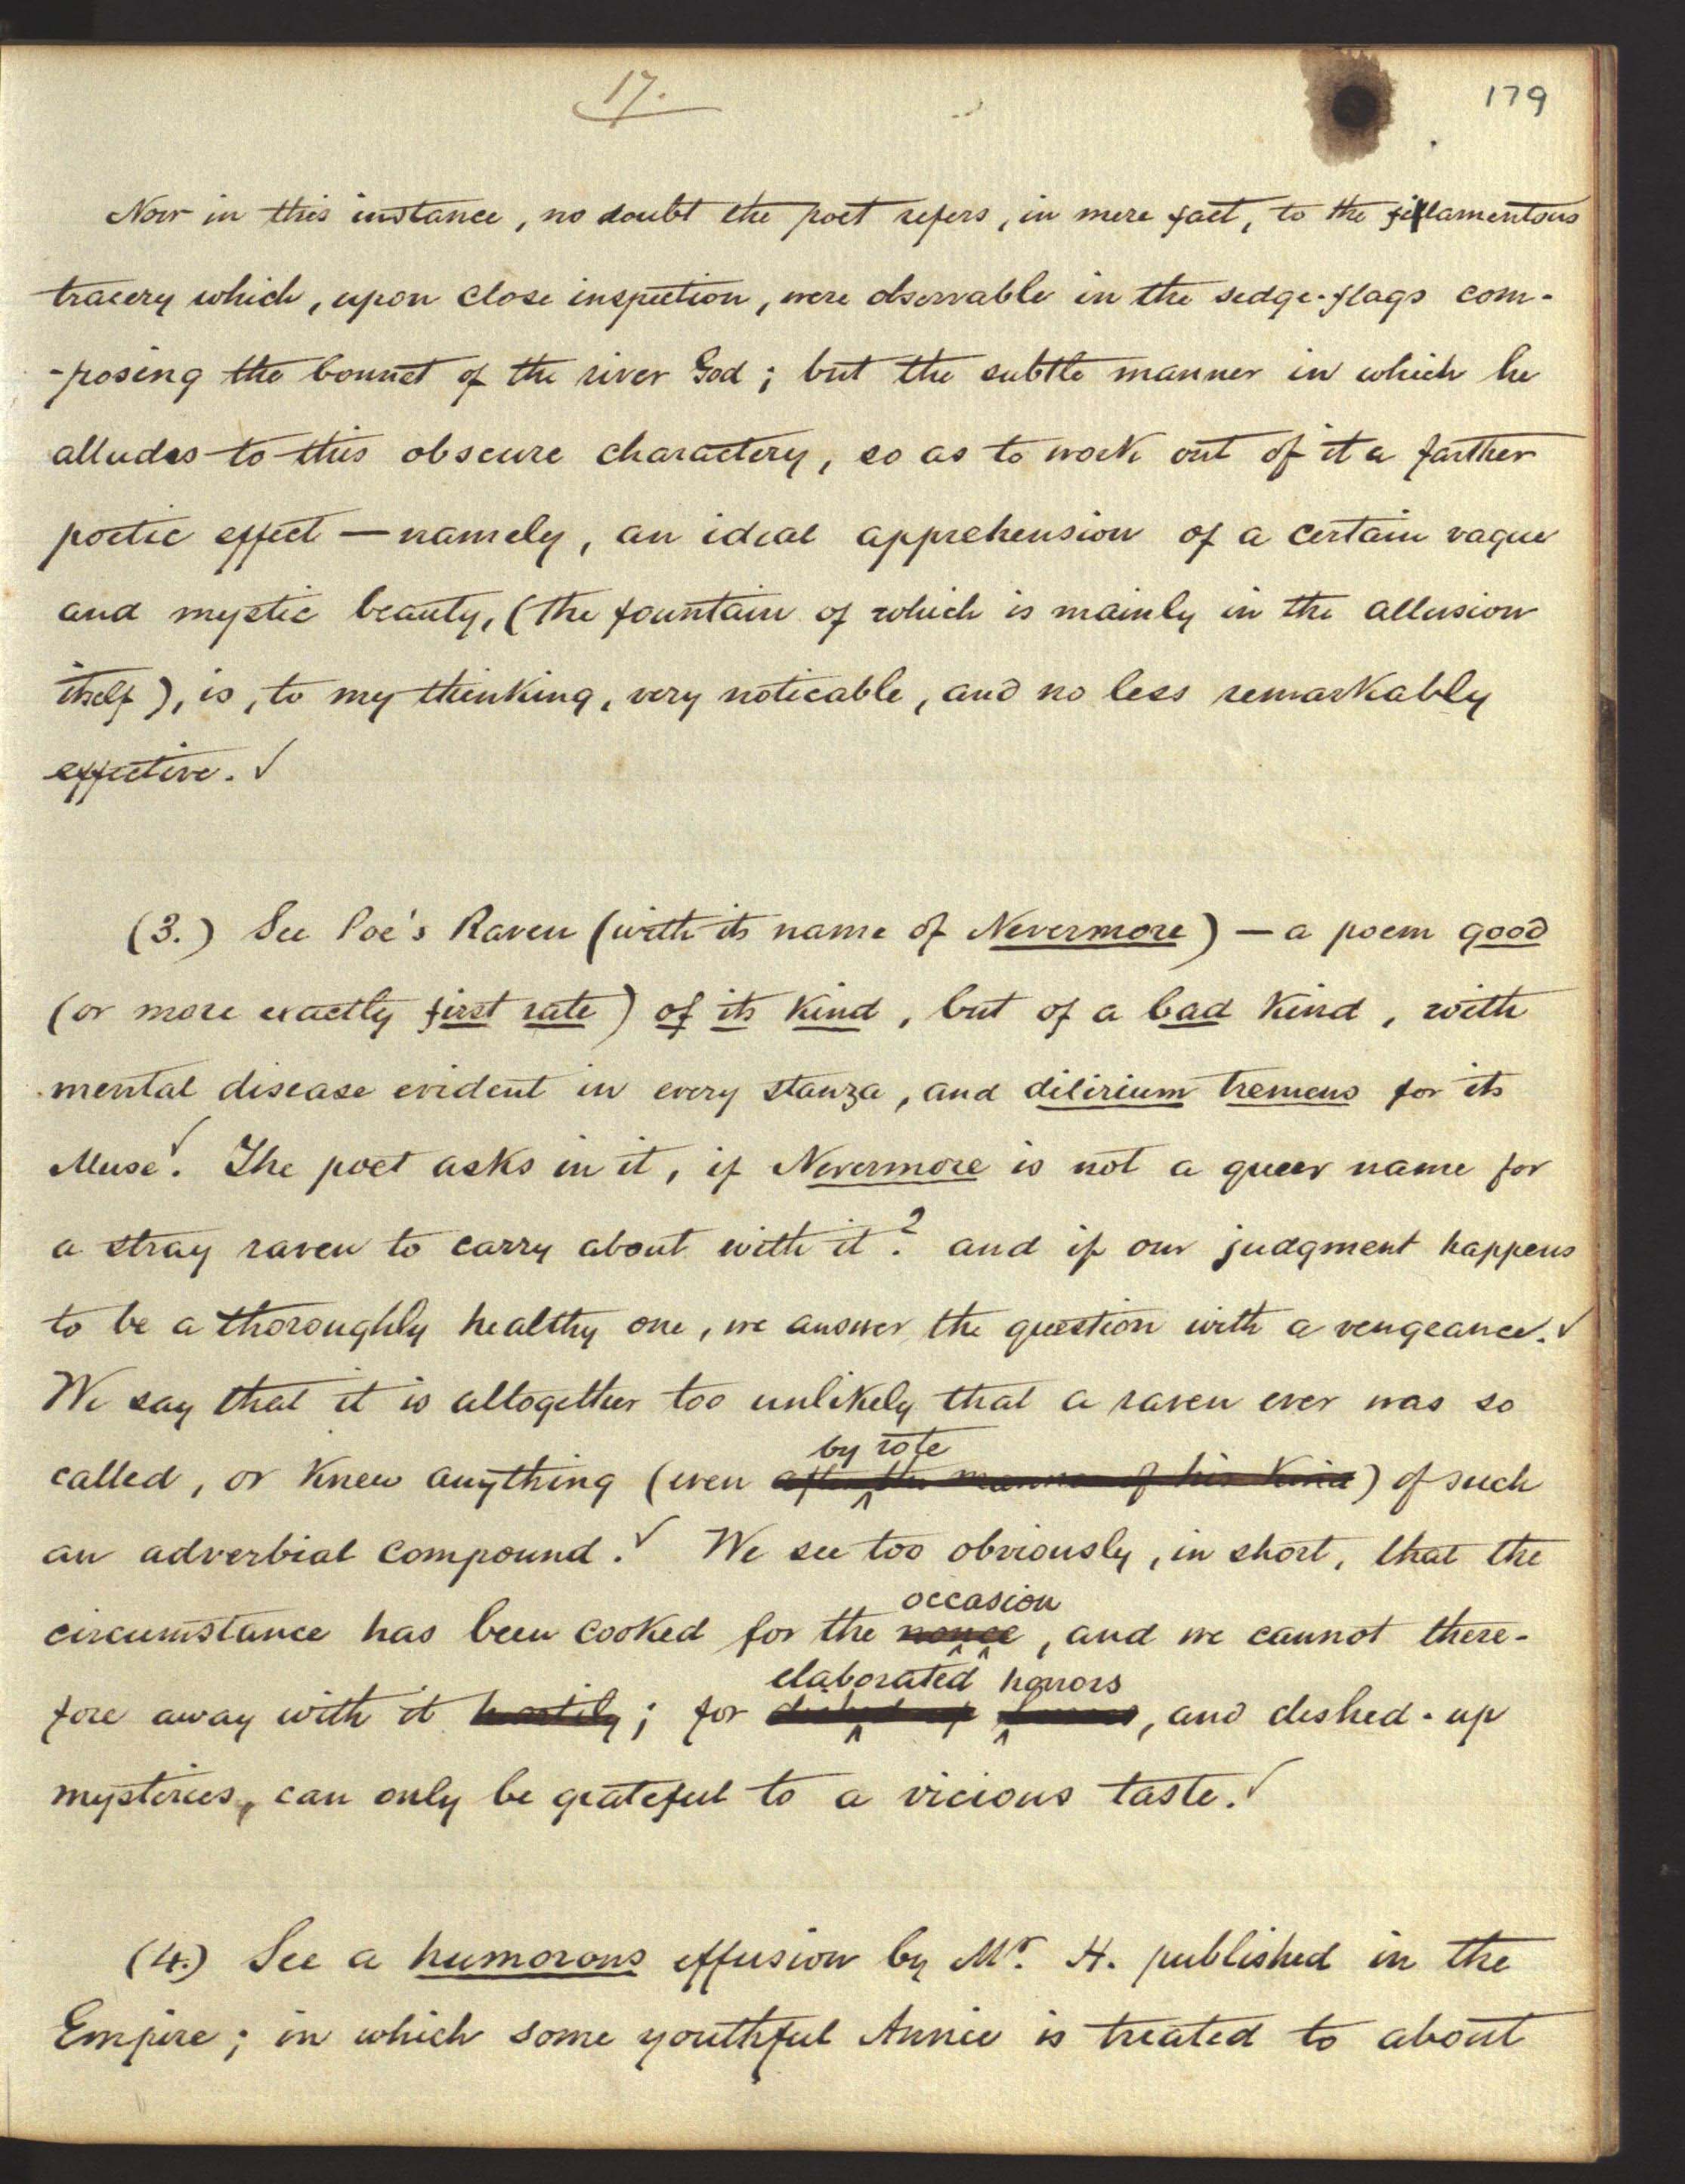 17.
179
Now in this instance, no doubt the poet refers, in mere fact, to the fillamentous
tracery which, upon close inspection, were observable in the sedge-flags com-
-posing the bonnet of the river God; but the subtle manner in which he
alludes to this obscure charactery, so as to work out of it a farther
poetic effect — namely, an ideal apprehension of a certain vague
and mystic beauty, (the fountain of which is mainly in the allusion
itself), is, to my thinking, very noticable, and no less remarkably
effective. ✓
(3.) See Poe's Raven (with its name of Nevermore) — a poem good
(or more exactly first rate) of its kind, but of a bad kind, with
mental disease evident in every stanza, and dilirium tremens for its
Muse ✓. The poet asks in it, if Nevermore is not a queer name for
a stray raven to carry about with it? and if our judgment happens
to be a thoroughly healthy one, we answer the question with a vengeance. ✓
We say that it is altogether too unlikely that a raven ever was so
by rote
called, or knew anything (even after the manner of his kind) of such
an adverbial compound. ✓ We see too obviously, in short, that the
occasion
circumstance has been cooked for the nonce, and we cannot there-
elaborated honors
fore away with it heartily; for dished up, and dished-up
mysteries, can only be grateful to a vicious taste. ✓
(4.) See a humorous effusion by Mr. H. published in the
Empire; in which some youthful Annie is treated to about